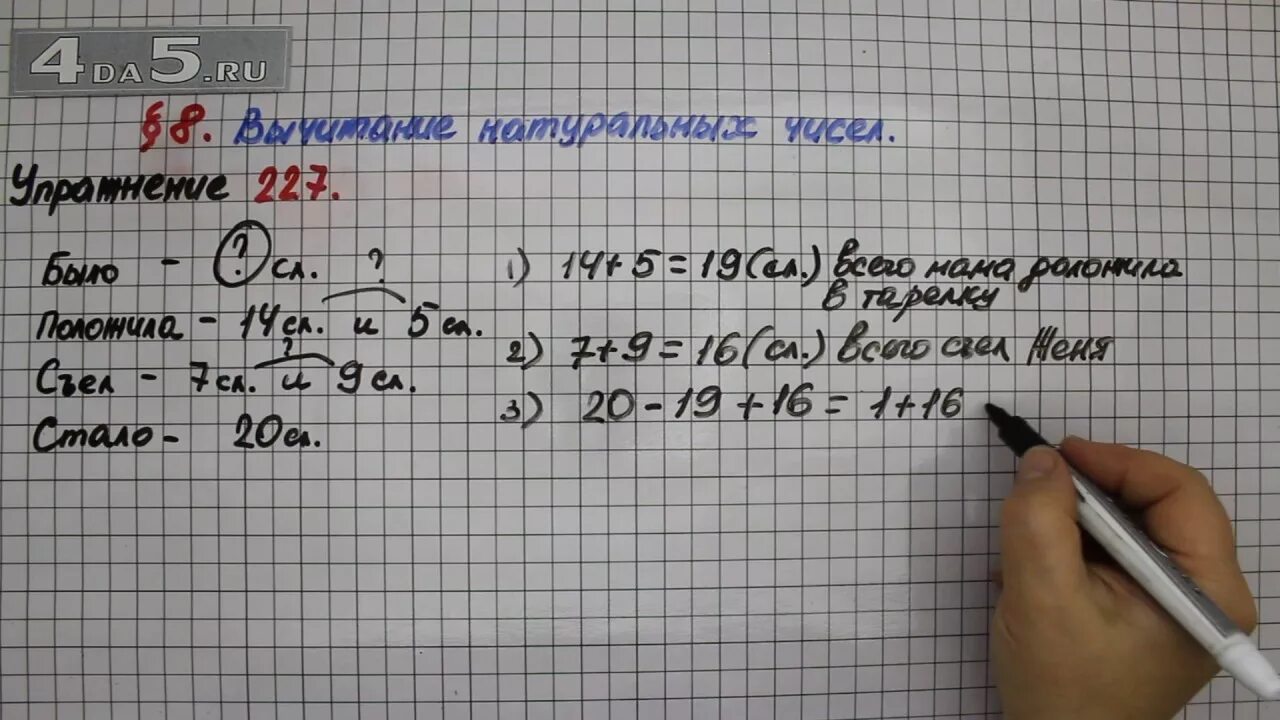 4DA5.RU
§ 8. Вычитание натуральных чисел.
Упражнение 227.
Было - ? сл. ?
Положила - 14 сл. и 5 сл.
?
Съел - 7 сл. и 9 сл.
Стало - 20 сл.
1) 14 + 5 = 19 (сл.) всего мама положила
в тарелку
2) 7 + 9 = 16 (сл.) всего съел Женя
3) 20 - 19 + 16 = 1 + 16